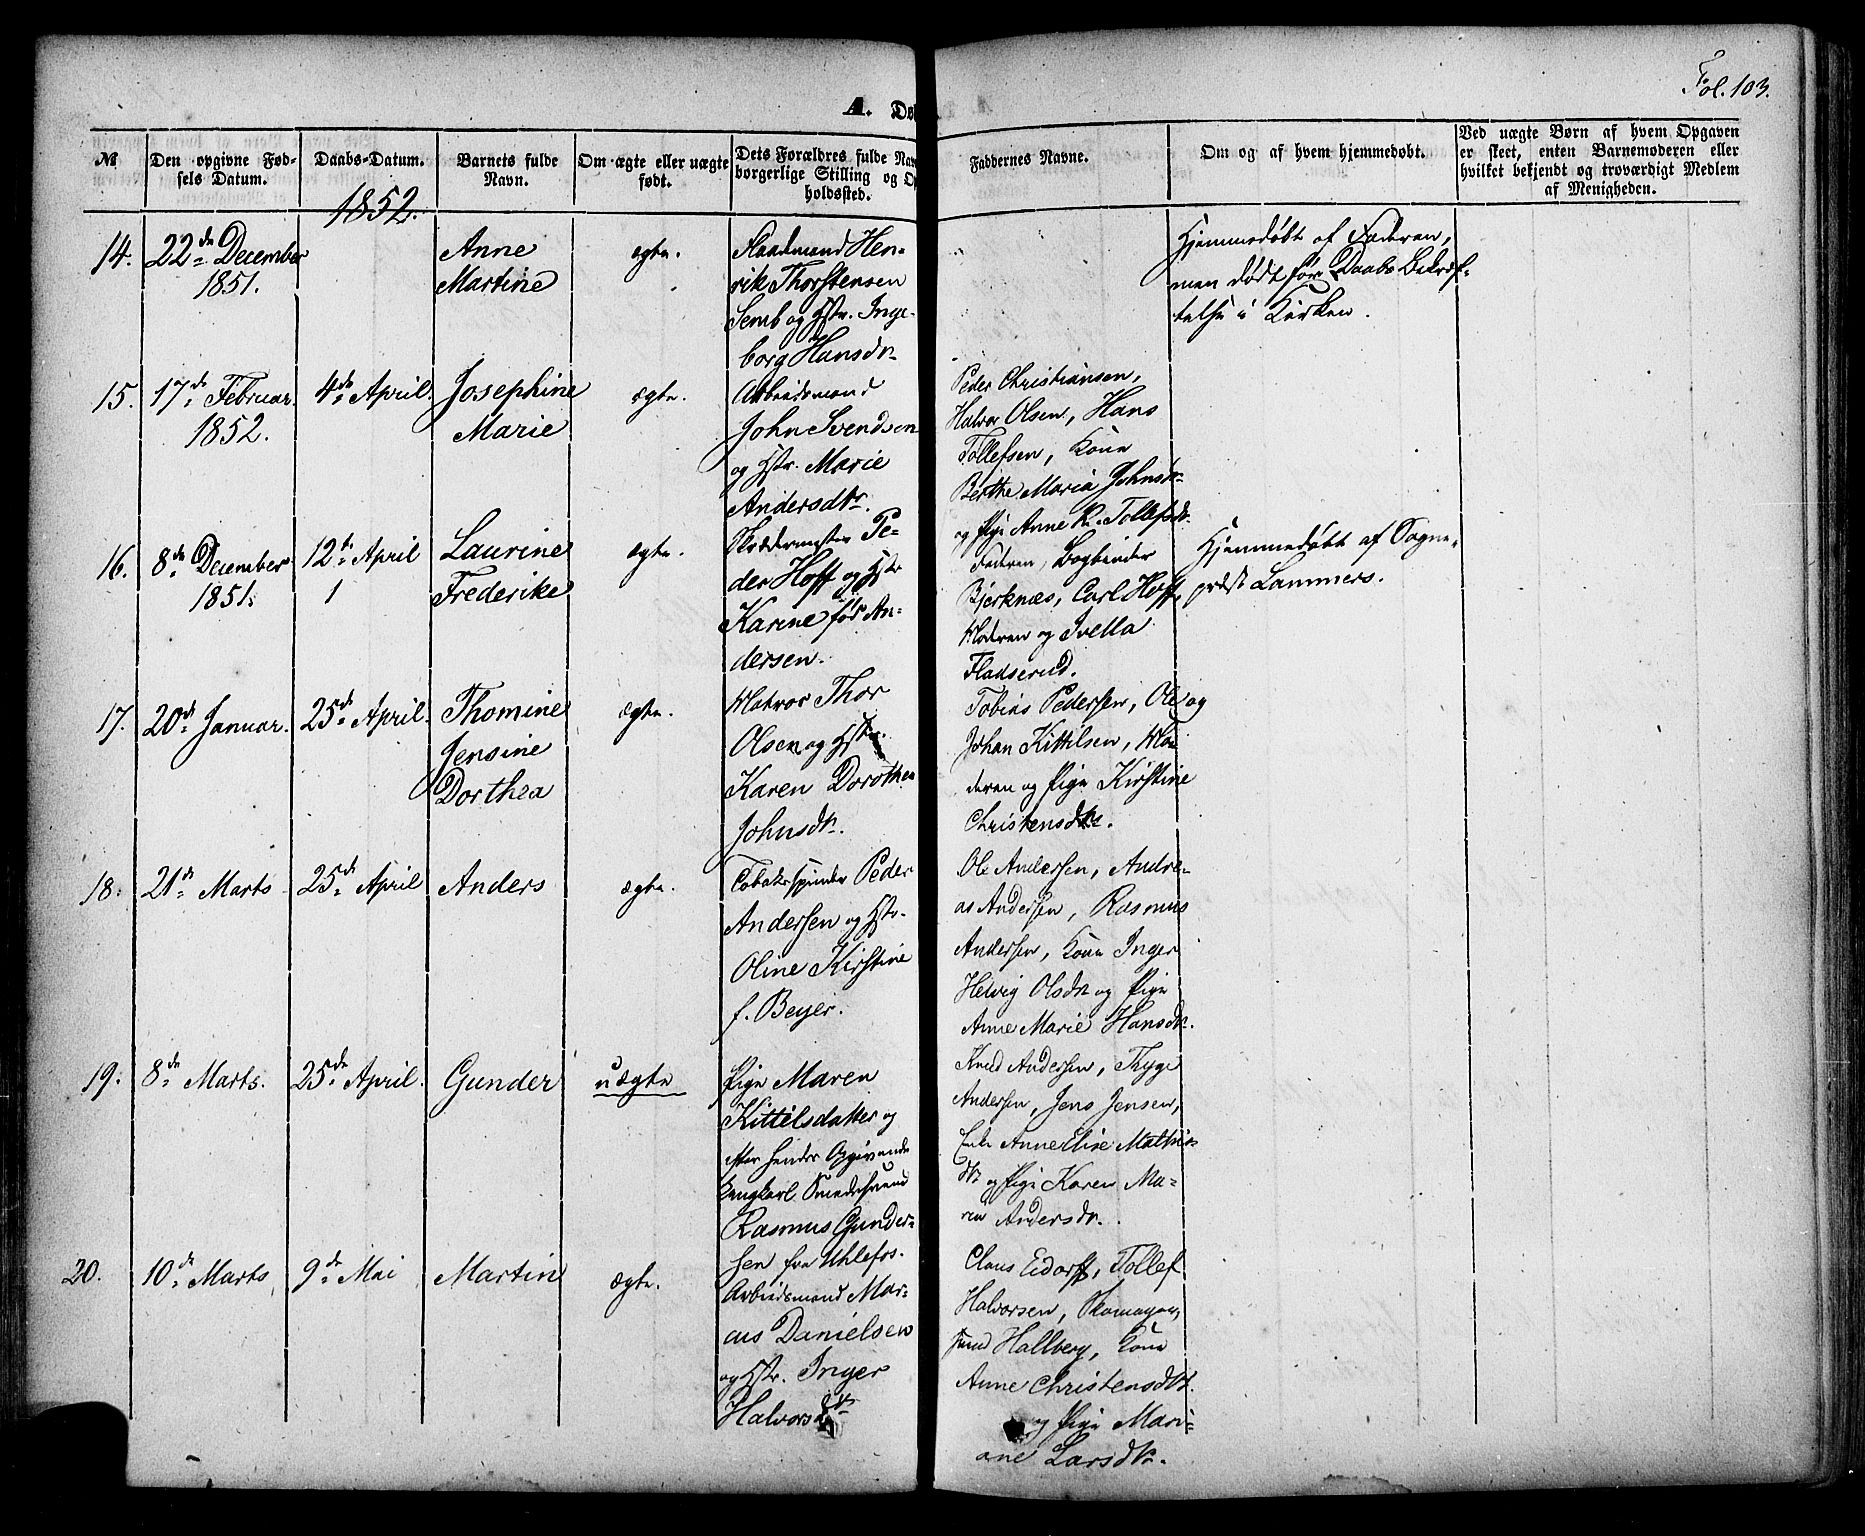 Fol. 103.
A. Dø
№
Den opgivne Fød-
sels Datum.
Daabs-Datum.
Barnets fulde
Navn.
Om ægte eller uægte
født.
Dets Forældres fulde Nav
borgerlige Stilling og Op
holdssted.
Faddernes Navne.
Om og af hvem hjemmedøbt.
Ved uægte Børn af hvem Opgaven
er skeet, enten Barnemoderen eller
hvilket bekjendt og troværdigt Medlem
af Menigheden.
1852.
14.
22de December
1851.
Anne
Martine
ægte.
Henrik Thorstensen
Semb og Hstr. Inge-
borg Hansdr
Hjemmedøbt af Faderen,
men dødt før Daabs Bekræf-
telse i Kirken.
15.
17de Februar
1852.
4de April
Josephine
Marie
ægte.
Arbeidsmand
John Svendsen
og Hstr. Marie
Andersdtr.
Peder Christiansen,
Halvor Olsen, Hans
Tollefsen, Kone
Berthe Maria Johnsdr
og Pige Anne K. Tollefsdr.
16.
8de December
1851.
12te April
1
Laurine
Frederike
ægte.
Skrædermester Pe-
der Hoff og Hstr
Karine født An-
dersen.
Faderen, Bogbinder
Bjerknæs, Carl Hoff,
Moderen og
Fladserud.
Hjemmedøbt af Sogne-
præst Lammers.
17.
20de Januar.
25de April.
Thomine
Jensine
Dorthea
ægte.
Matros Thor
Olsen og Hstr.
Karen Dorothea
Johnsdr.
Tobias Pedersen, Ole og
Johan Kittilsen, Mo-
deren og Pige Kirstine
Christensdr.
18.
21de Marts
25de April
Anders
ægte.
Tobakspinder Peder
Andersen og Hstr.
Oline Kirstine
f. Beyer.
Ole Andersen, Andre-
as Andersen, Rasmus
Andersen, Kone Inger
Helvig Olsdr og Pige
Anne Marie Hansdr.
19.
8de Marts.
25de April.
Gunder
uægte
Pige Maren
Kittelsdatter og
efter hendes Opgivende
Ungkarl Smedesvend
Rasmus Gunder-
sen fra Uhlefos.
Knud Andersen, Thyge
Andersen, Jens Jensen,
Enke Anne Elise Mathis-
dr og Pige Karen Ma-
ren Andersdr.
20.
10de Marts
9de Mai
Martin
ægte.
Arbeidsmand Mar-
cus Danielsen
og Hstr. Inger
Halvorsdtr
Claus Eidorff, Tollef
Halvorsen, Skomager-
svend Hallberg, Kone
Anne Christensdtr.
og Pige Mari-
ane Larsdr.